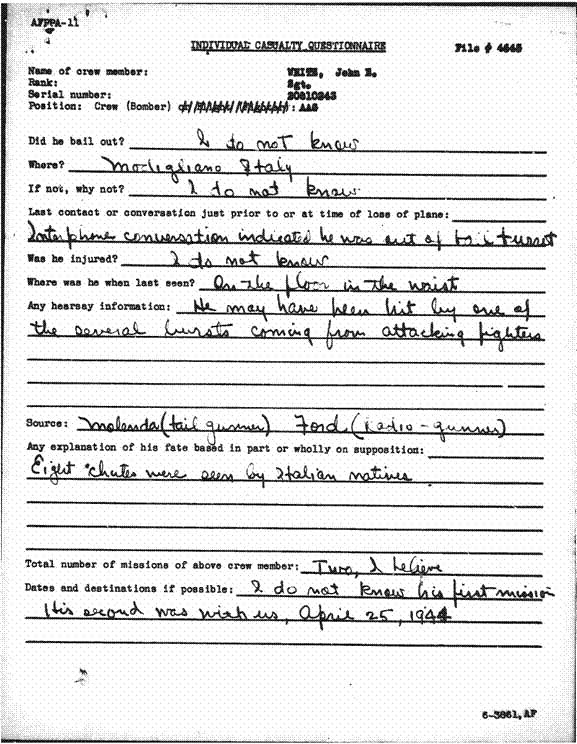 AFPPA-11
INDIVIDUAL CASUALTY QUESTIONNAIRE File # 4645
Name of crew member: John E.
Rank: Sgt.
Serial number: 20810243
Position: Crew (Bomber) : AAG
Did he bail out? I do not know
Where? Modigliano Italy
If not, why not? I do not know
Last contact or conversation just prior to or at time of loss of plane:
Interphone conversation indicated he was out of tail turret
Was he injured? I do not know
Where was he when last seen? On the floor in the waist
Any hearsay information: He may have been hit by one of
the several bursts coming from attacking fighters
Source: Molenda (tail gunner) Ford (Radio-gunner)
Any explanation of his fate based in part or wholly on supposition:
Eight chutes were seen by Italian natives
Total number of missions of above crew member: Two, I believe
Dates and destinations if possible: I do not know his first mission
His second was with us, April 25, 1944
6-3861,AF